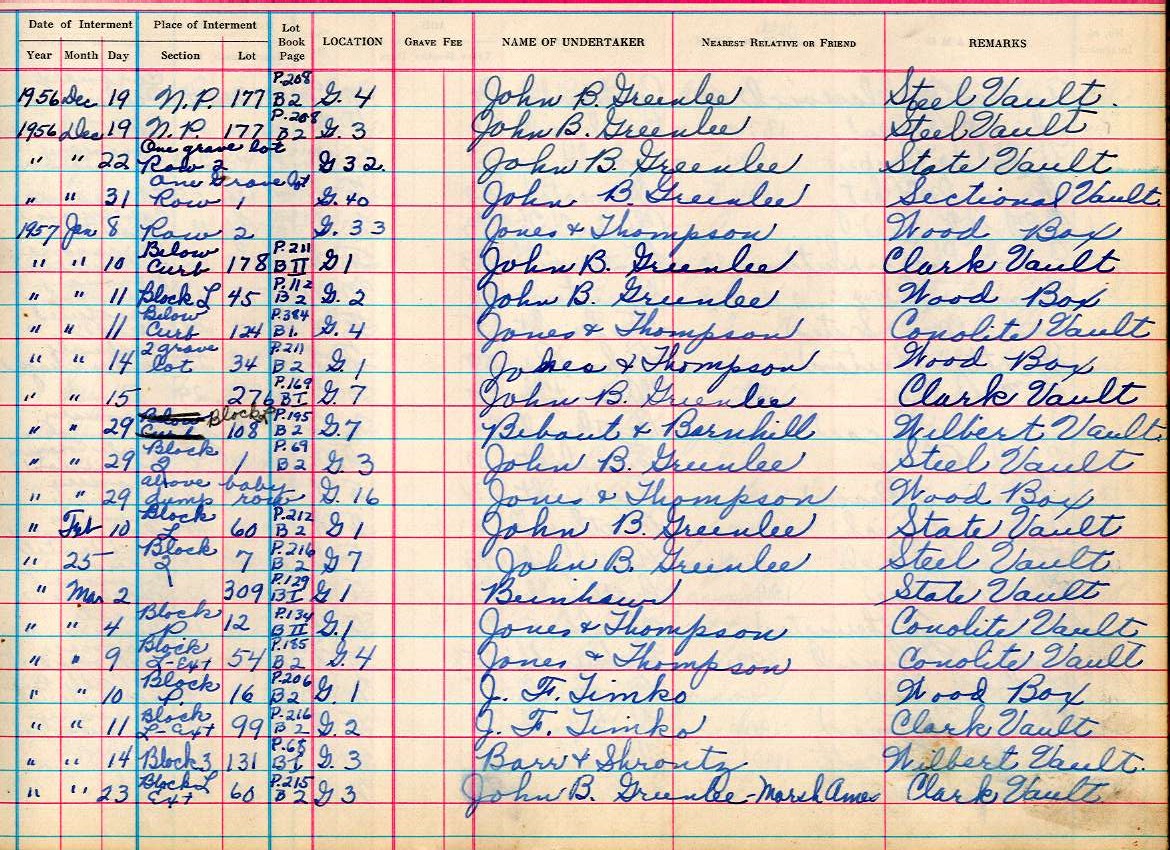 Date of Interment Place of Interment Lot Book Page LOCATION GRAVE FEE NAME OF UNDERTAKER NEAREST RELATIVE OR FRIEND REMARKS
Year Month Day Section Lot
1956 Dec 19 N.P. 177 P.208 B2 G. 4 John B. Greenlee Steel Vault.
1956 Dec 19 N.P. 177 P.208 B2 G. 3 John B. Greenlee Steel Vault
" " 22 One grave lot Row 2 G 32. John B. Greenlee State Vault
" " 31 One Grave lot Row 1 G. 40 John B. Greenlee Sectional Vault.
1957 Jan 8 Row 2 G. 33 Jones & Thompson Wood Box
" " 10 Below Curb 178 P.211 B II G 1 John B. Greenlee Clark Vault
" " 11 Block L 45 P.112 B 2 G. 2 John B. Greenlee Wood Box
" " 11 Below Curb 124 P.384 B1. G. 4 Jones & Thompson Conolite Vault
" " 14 2 grave lot 34 P.211 B 2 G. 1 Jones & Thompson Wood Box
" " 15 276 P.169 B I G. 7 John B. Greenlee Clark Vault
" " 29 Below Curb Block L 108 P.195 B 2 G. 7 Bebout & Barnhill Wilbert Vault.
" " 29 Block 2 1 P.69 B 2 G. 3 John B. Greenlee Steel Vault
" " 29 above baby dump row G. 16 Jones & Thompson Wood Box
" Feb 10 Block L 60 P.212 B 2 G 1 John B. Greenlee State Vault
" 25 Block 2 7 P.216 B 2 G 7 John B. Greenlee Steel Vault
" Mar 2 309 P.129 B I G 1 Beinhauer State Vault
" " 4 Block P 12 P.134 B II G. 1 Jones & Thompson Conolite Vault
" " 9 Block L-Ext 54 P.185 B 2 G. 4 Jones & Thompson Conolite Vault
" " 10 Block P. 16 P.206 B 2 G. 1 J. F. Timko Wood Box
" " 11 Block L-Ext 99 P.216 B 2 G. 2 J. F. Timko Clark Vault
" " 14 Block 3 131 P.65 B I G. 3 Barr & Shrontz Wilbert Vault.
" " 23 Block L Ext 60 P.215 B 2 G 3 John B. Greenlee - Marsh Ames Clark Vault